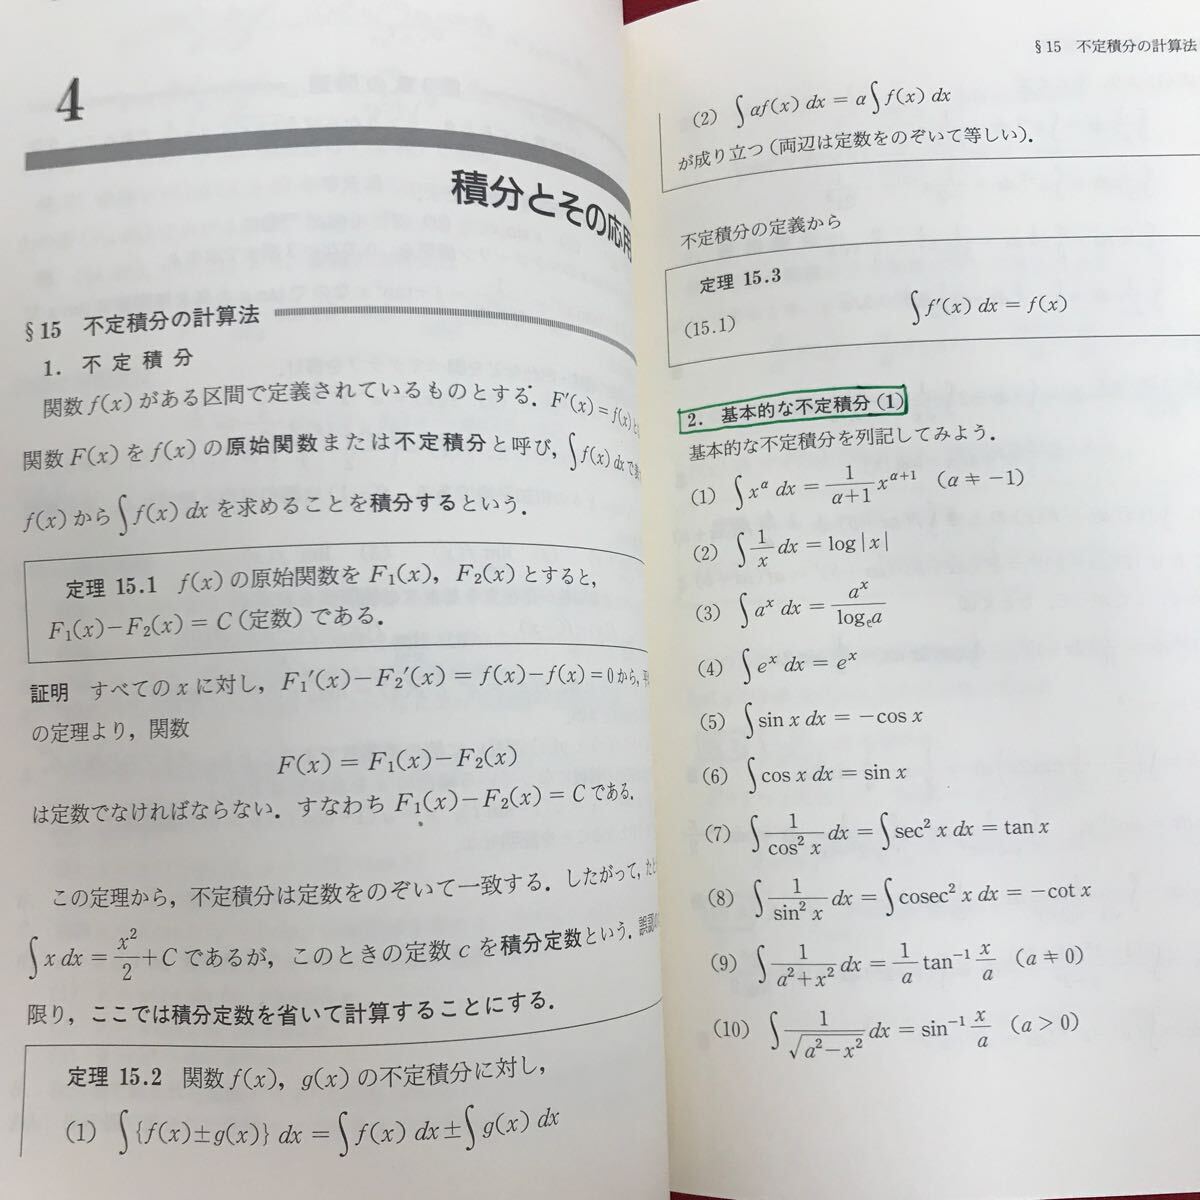 4
積分とその応用
§15 不定積分の計算法
1. 不定積分
関数 f(x) がある区間で定義されているものとする. F'(x) = f(x)
関数 F(x) を f(x) の原始関数または不定積分と呼び, ∫f(x) dx で
f(x) から ∫f(x) dx を求めることを積分するという.
定理 15.1 f(x) の原始関数を F₁(x), F₂(x) とすると,
F₁(x)−F₂(x) = C (定数) である.
証明 すべての x に対し, F₁'(x)−F₂'(x) = f(x)−f(x) = 0 から,
の定理より, 関数
F(x) = F₁(x)−F₂(x)
は定数でなければならない. すなわち F₁(x)−F₂(x) = C である.
この定理から, 不定積分は定数をのぞいて一致する. したがって,
∫x dx = x²/2 + C であるが, このときの定数 c を積分定数という.
限り, ここでは積分定数を省いて計算することにする.
定理 15.2 関数 f(x), g(x) の不定積分に対し,
(1) ∫{f(x)±g(x)} dx = ∫f(x) dx ± ∫g(x) dx
§15 不定積分の計算法
(2) ∫αf(x) dx = α∫f(x) dx
が成り立つ (両辺は定数をのぞいて等しい).
不定積分の定義から
定理 15.3
(15.1) ∫f'(x) dx = f(x)
2. 基本的な不定積分 (1)
基本的な不定積分を列記してみよう.
(1) ∫x^α dx = 1/(α+1) x^(α+1) (α ≠ −1)
(2) ∫1/x dx = log|x|
(3) ∫a^x dx = a^x/logₑa
(4) ∫e^x dx = e^x
(5) ∫sin x dx = −cos x
(6) ∫cos x dx = sin x
(7) ∫1/cos² x dx = ∫sec² x dx = tan x
(8) ∫1/sin² x dx = ∫cosec² x dx = −cot x
(9) ∫1/(a²+x²) dx = 1/a tan⁻¹ x/a (a ≠ 0)
(10) ∫1/√(a²−x²) dx = sin⁻¹ x/a (a > 0)